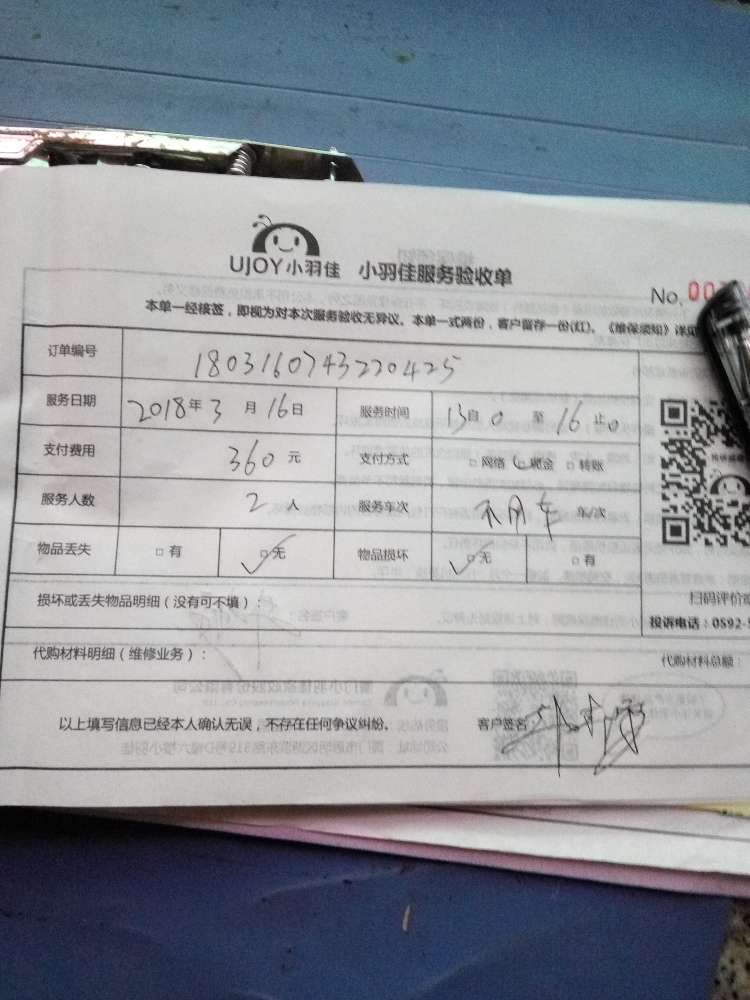 UJOY小羽佳 小羽佳服务验收单
No. 00
本单一经接签，即视为对本次服务验收无异议。本单一式两份，客户留存一份(红)。《维保须知》详见
订单编号 1803160743220425
服务日期 2018年3月16日 服务时间 13自0至16止0
支付费用 360元 支付方式 □网络 □现金 □转账
服务人数 2人 服务车次 不用车 车/次
物品丢失 □有 □无 物品损坏 □无 □有
损坏或丢失物品明细（没有可不填）：
扫码评价或
投诉电话：0592-5
代购材料明细（维修业务）：
代购材料总额：
以上填写信息已经本人确认无误，不存在任何争议纠纷。 客户签名